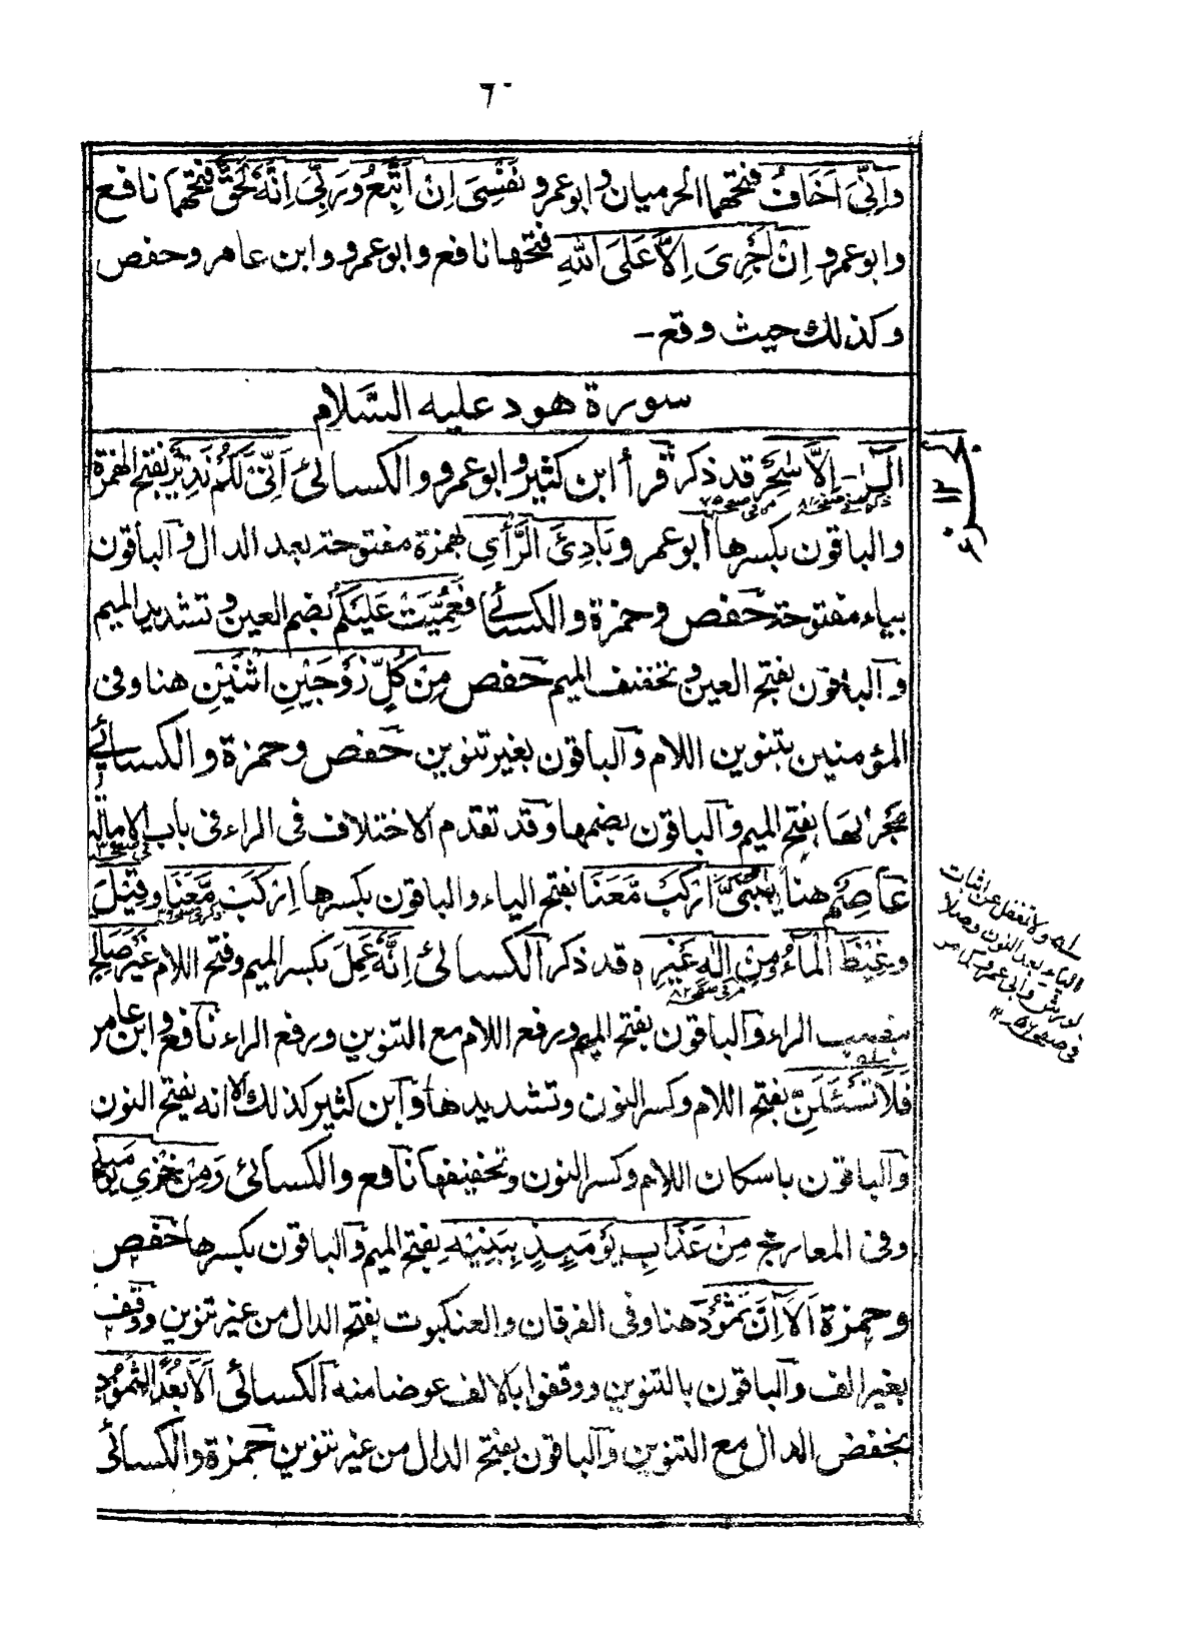 ٦٠
وَاِنِّیَ اَخَافُ فتحهما الحرمیان وابو عمرو نَفْسِیَ اِنْ اَتَّبِعُ وَرَبِّیَ اِنَّهٗ لَحَقٌّ فتحهما نافع
وابو عمرو اِنْ اَجْرِیَ اِلَّا عَلَی اللّٰهِ فتحها نافع وابو عمرو وابن عامر وحفص
وكذلك حیث وقع –
سورة هود علیه السَّلام
الٓرٰ – اِلَّا سٰحِرٌ قد ذکر قرأ ابن کثیر وابو عمرو والکسائی اَنِّیْ لَکُمْ نَذِیْرٌ بفتح الهمزة
ذکر فی صفحه ۸۰ مر فی صفحه ۷۵
والباقون بکسرها ابو عمرو بَادِئَ الرَّأْیِ بهمزة مفتوحة بعد الدال والباقون
بیاء مفتوحة حفص وحمزة والکسائی فَعُمِّیَتْ عَلَیْکُمْ بضم العین وتشدید المیم
والباقون بفتح العین وتخفیف المیم حفص مِنْ کُلٍّ زَوْجَیْنِ اثْنَیْنِ هنا وفی
المؤمنین بتنوین اللام والباقون بغیر تنوین حفص وحمزة والکسائی
مجرٰها بفتح المیم والباقون بضمها وقد تقدم الاختلاف فی الراء فی باب الامالة
عَاصِم هنا یٰبُنَیَّ ارْکَبْ مَّعَنَا بفتح الیاء والباقون بکسرها اِرْکَبْ مَّعَنَا وقِیْلَ
وغِیْضَ الْمَاءُ ومِنْ اِلٰهٍ غَیْرِهٖ قد ذکر الکسائی اِنَّهٗ عَمِلَ بکسر المیم وفتح اللام غَیْرَ صَالِحٍ
مر فی صفحه ۸۲
بنصب الراء والباقون بفتح المیم ورفع اللام مع التنوین ورفع الراء نافع وابن عامر
فَلَا تَسْئَلَنِّ بفتح اللام وکسر النون وتشدیدها وابن کثیر کذلك الا انه یفتح النون
والباقون باسکان اللام وکسر النون وتخفیفها نافع والکسائی وَمِنْ خِزْیِ یَوْمَئِذٍ
وفی المعارج مِنْ عَذَابِ یَوْمَئِذٍ بِبَنِیْهِ بفتح المیم والباقون بکسرها حفص
وحمزة اَلَا اِنَّ ثَمُوْدَ هنا وفی الفرقان والعنکبوت بفتح الدال من غیر تنوین ووقف
بغیر الف والباقون بالتنوین ووقفوا بالالف عوضا منه الکسائی اَلَا بُعْدًا لِّثَمُوْدٍ
بخفض الدال مع التنوین والباقون بفتح الدال من غیر تنوین حمزة والکسائی
ولا تغفل عن اثبات
الیاء بعد النون وصلا
لورش وابی عمرو کما مر
فی صفحه